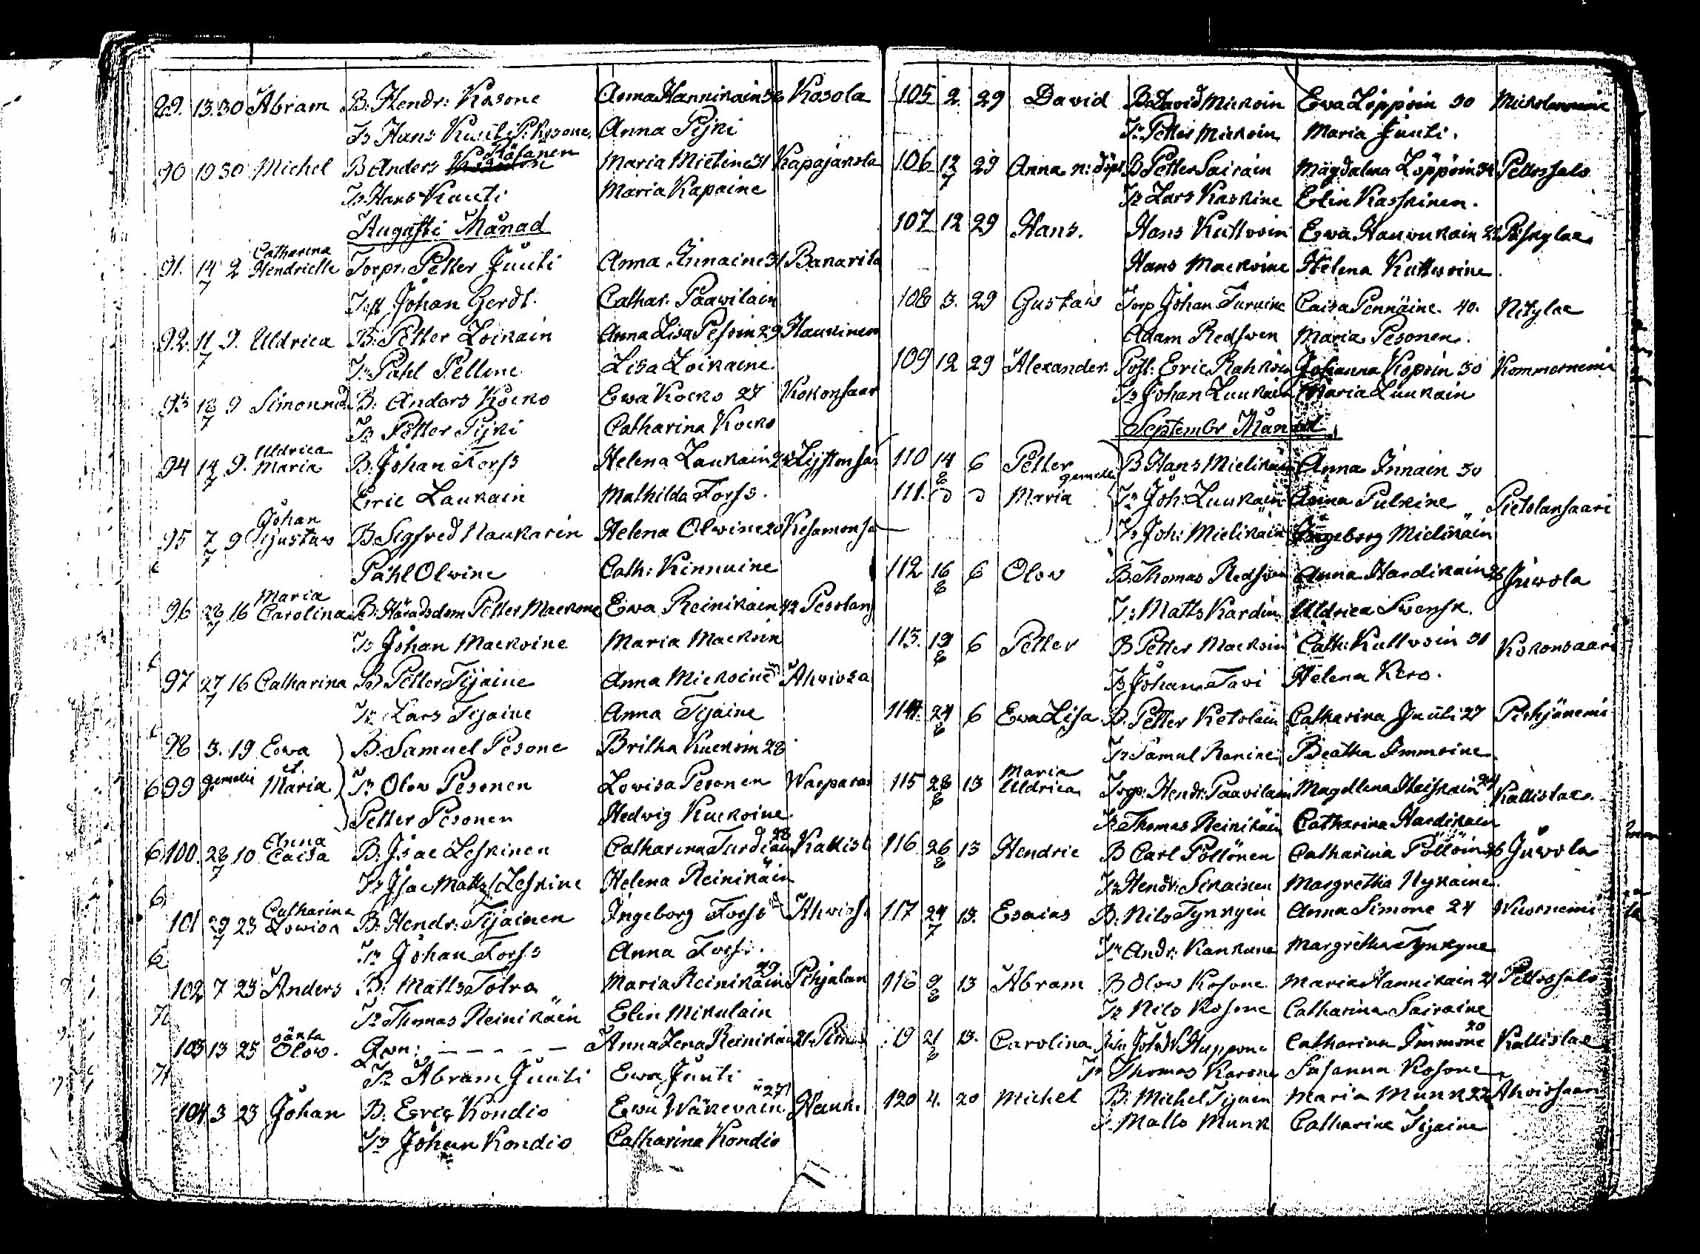 89. 13. 30 Abram B. Hendr: Kosone Anna Hannikain 36 Kosola
Tr Hans Kuuti P. Kosone Anna Pijri
90 19 30 Michel B Anders Hätönen Maria Mietine 31 Kapajärola
Tr Hans Kuuti Maria Kapaine
Augusti Månad
91. 14/7 2 Catharina Hendricte Torpr: Petter Juuti Anna Innaine 31 Bakarila
Tr Johan Gerdt. Cathar. Paavilain
92. 11/7 9. Uldrica B. Petter Loikain Anna Lisa Pesoin 29 Haukinen
Tr Pahl Pelline Lisa Loikaine
93 18/7 9 Simon B: Anders Kocko Ewa Kocko 27 Kokonsaar
Tr Petter Pijri Catharina Kocko
94 14/7 9. Uldrica Maria B. Johan Forss Helena Laukain
Eric Laukain Mathilda Forss.
95 7/7 9 Johan Gustaw B Sigfred Naukarin Helena Olwine 20 Kesamonsa
Pahl Olwine Cath: Kinnuine
96 28/7 16 Maria Carolina B: Häradsdom Petter Mackone Ewa Reinikain 42 Pesolan
Tr Johan Mackoine Maria Mackoin
97 27/7 16 Catharina B Petter Tijaine Anna Mickoine Ahvioza
Tr Lars Tijaine Anna Tijaine
98 3. 19 Ewa B. Samuel Pesone Britha Kuckoin 28
99 gemelli et Maria Tr Olov Pesonen Lovisa Pesonen Warparan
Petter Pesonen Hedvig Kuckoine
100. 28/7 10 Anna Caisa B. Isac Leskinen Catharina Turdiain 28 Kallist
Tr Isac Matts Leskine Helena Reinikäin
101 29/7 23 Catharina Lowisa B. Hendr. Tijainen Ingeborg Forss Ahvios
Tr Johan Forss Anna Forss.
102 7 23 Anders B. Matts Totro Maria Reinikäin 29 Pohjalan
Tr Thomas Reinikäin Elin Mikulain
103 13 25 oäkta Olow. Qwn: - - - - - Anna Lena Reinikä
Tr Abram Juuti Ewa Juuti
104 3 23 Johan B. Eric Kondio Ewa Wäkevain 27 Hauk
Tr Johan Kondio Catharina Kondio
105 2. 29 David B. David Mickoin Ewa Löppöin 30
Tr Petter Mickoin Maria Juuti.
106 12/7 29 Anna B Petter Sairain Magdalena Löppöin Petrossalo
Tr Lars Kaskine Elin Kaskinen.
107 12 29 Hans. Hans Kuttvoin Ewa Haurukain
Hans Mackoine Helena Kuttwoine
108 3. 29 Gustaw Torp Johan Turuine Caisa Pennäine. 40. Nitylae
Adam Redsven Maria Pesonen.
109 12 29 Alexander Eric Rahkoin Johanna Kopoin 30 Kommerniemi
Tr Johan Luukain Maria Luukain
Septembr Månad.
110 14/8 6 Petter gemelli B Hans Mielikäin Anna Innain 30
111. d d Maria Tr Joh: Luukain Anna Pulkine Pietolansaari
Tr Joh: Mielikäin Ingeborg Mielikäin
112 16/8 6 Olov B. Thomas Redsven Anna Hardikain 26 Juwola
Tr Matts Kardin Uldrica Swensk.
113. 19/8 6 Petter B Petter Mackoin Cath: Kuttvoin 31 Kokonsaari
Tr Johan Tavi Helena Kero.
114. 24/8 6 Ewa Lisa B. Petter Ketolain Catharina Juuti 27 Pohjäniemi
Tr Samul Ronine Beatha Immoine
115 28/8 13 Maria Uldrica Torp: Hendr: Paavilain Magdlena Heiskain 24 Kallislax.
Tr Thomas Reinikäin Catharina Hardikain
116. 26/8 13 Hendric B Carl Pöllönen Catharina Pöllöin 26 Juwola
Tr Hendr: Sikainen Margretha Nykaine.
117 24/7 13. Esaias B. Nils Tynkyin Anna Simone 24
Tr Andr. Kankune Margretha Tynkyne
118 9/8 13 Abram B Olov Kosone Maria Hannikain 21 Petrossalo
Tr Nils Kosone Catharina Sairaine
19 21/8 13. Carolina Joh. Huppone Catharina Immone 20 Kallislax
Tr Thomas Karone Susanna Kosone
120 4. 20 Michel B. Michel Tijain Maria Munk 22 Ahviosaari
Tr Matts Munk Catharina Tijaine